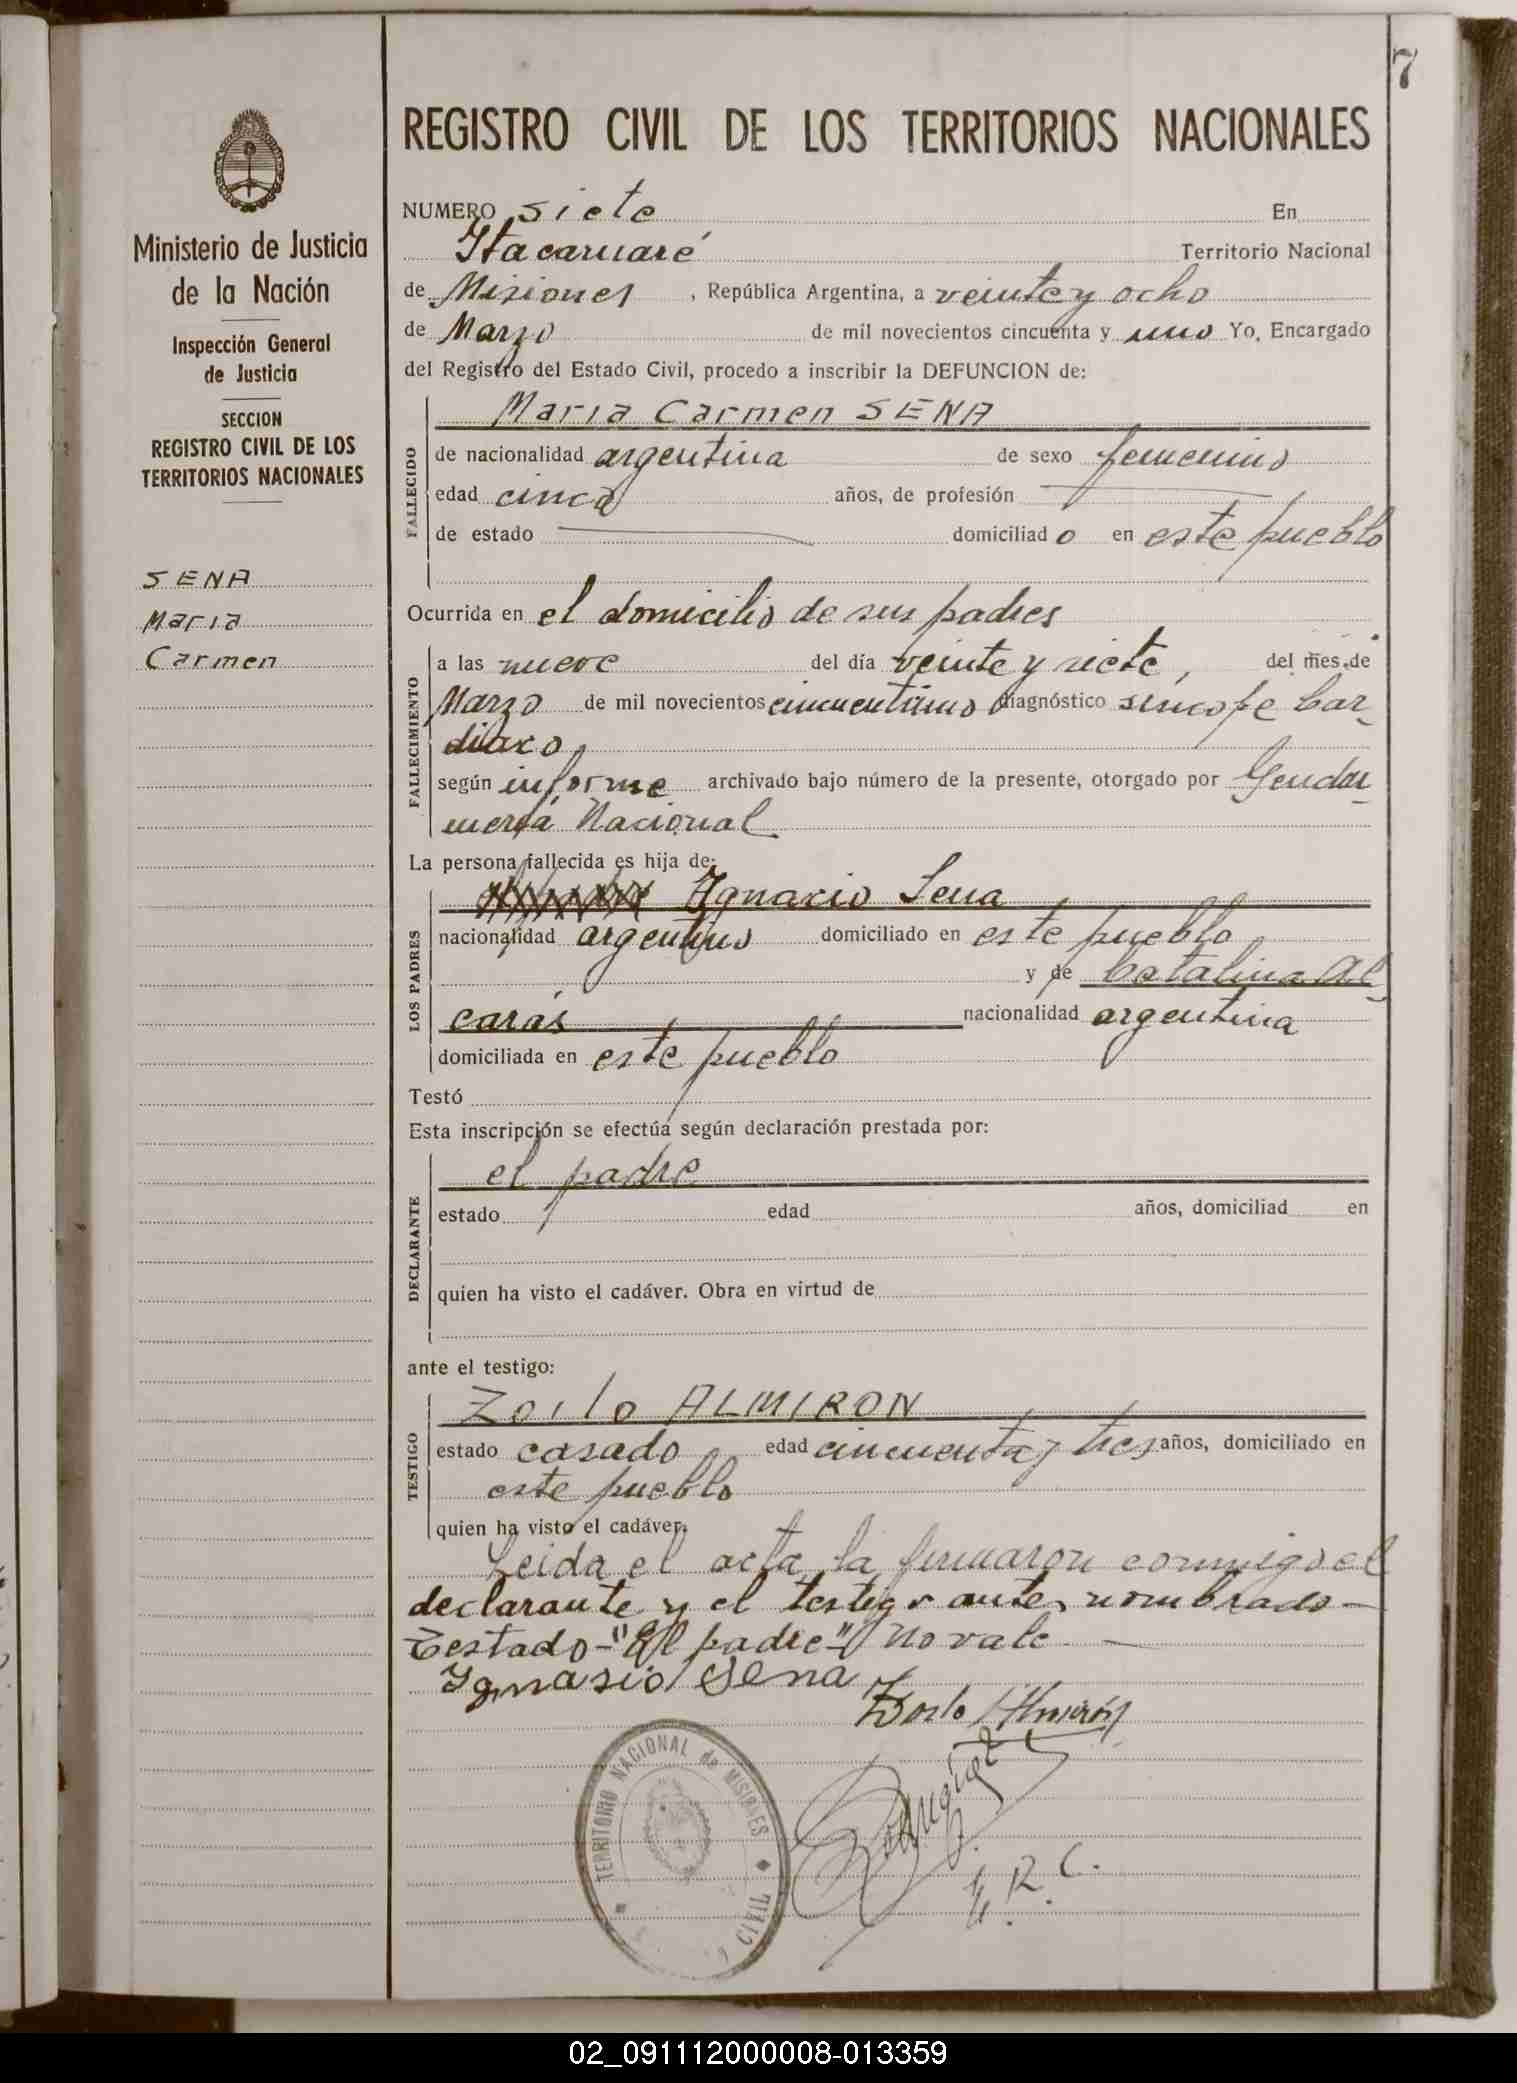 7
REGISTRO CIVIL DE LOS TERRITORIOS NACIONALES
Ministerio de Justicia
de la Nación
Inspección General
de Justicia
SECCION
REGISTRO CIVIL DE LOS
TERRITORIOS NACIONALES
SENA
Maria
Carmen
NUMERO siete En
Itacaruaré Territorio Nacional
de Misiones, República Argentina, a veinte y ocho
de Marzo de mil novecientos cincuenta y uno Yo, Encargado
del Registro del Estado Civil, procedo a inscribir la DEFUNCION de:
Maria Carmen SENA
FALLECIDO
de nacionalidad argentina de sexo femenino
edad cinco años, de profesión
de estado domiciliado en este pueblo
Ocurrida en el domicilio de sus padres
FALLECIMIENTO
a las nueve del día veinte y siete, del mes de
Marzo de mil novecientos cincuentiuno diagnóstico síncope Car-
diaco
según informe archivado bajo número de la presente, otorgado por Gendar-
mería Nacional
La persona fallecida es hija de:
LOS PADRES
Ignacio Sena
nacionalidad argentino domiciliado en este pueblo
y de Catalina Al-
carás nacionalidad argentina
domiciliada en este pueblo
Testó
Esta inscripción se efectúa según declaración prestada por:
DECLARANTE
el padre
estado edad años, domiciliad en
quien ha visto el cadáver. Obra en virtud de
ante el testigo:
TESTIGO
Zoilo ALMIRON
estado casado edad cincuenta y tres años, domiciliado en
este pueblo
quien ha visto el cadáver.
Leida el acta, la firmaron conmigo el
declarante y el testigo antes nombrado-
Testado-"El padre"-No vale-
Ignasio Sena
Zoilo Almirón
E.R.C.
TERRITORIO NACIONAL de MISIONES
CIVIL
02_091112000008-013359